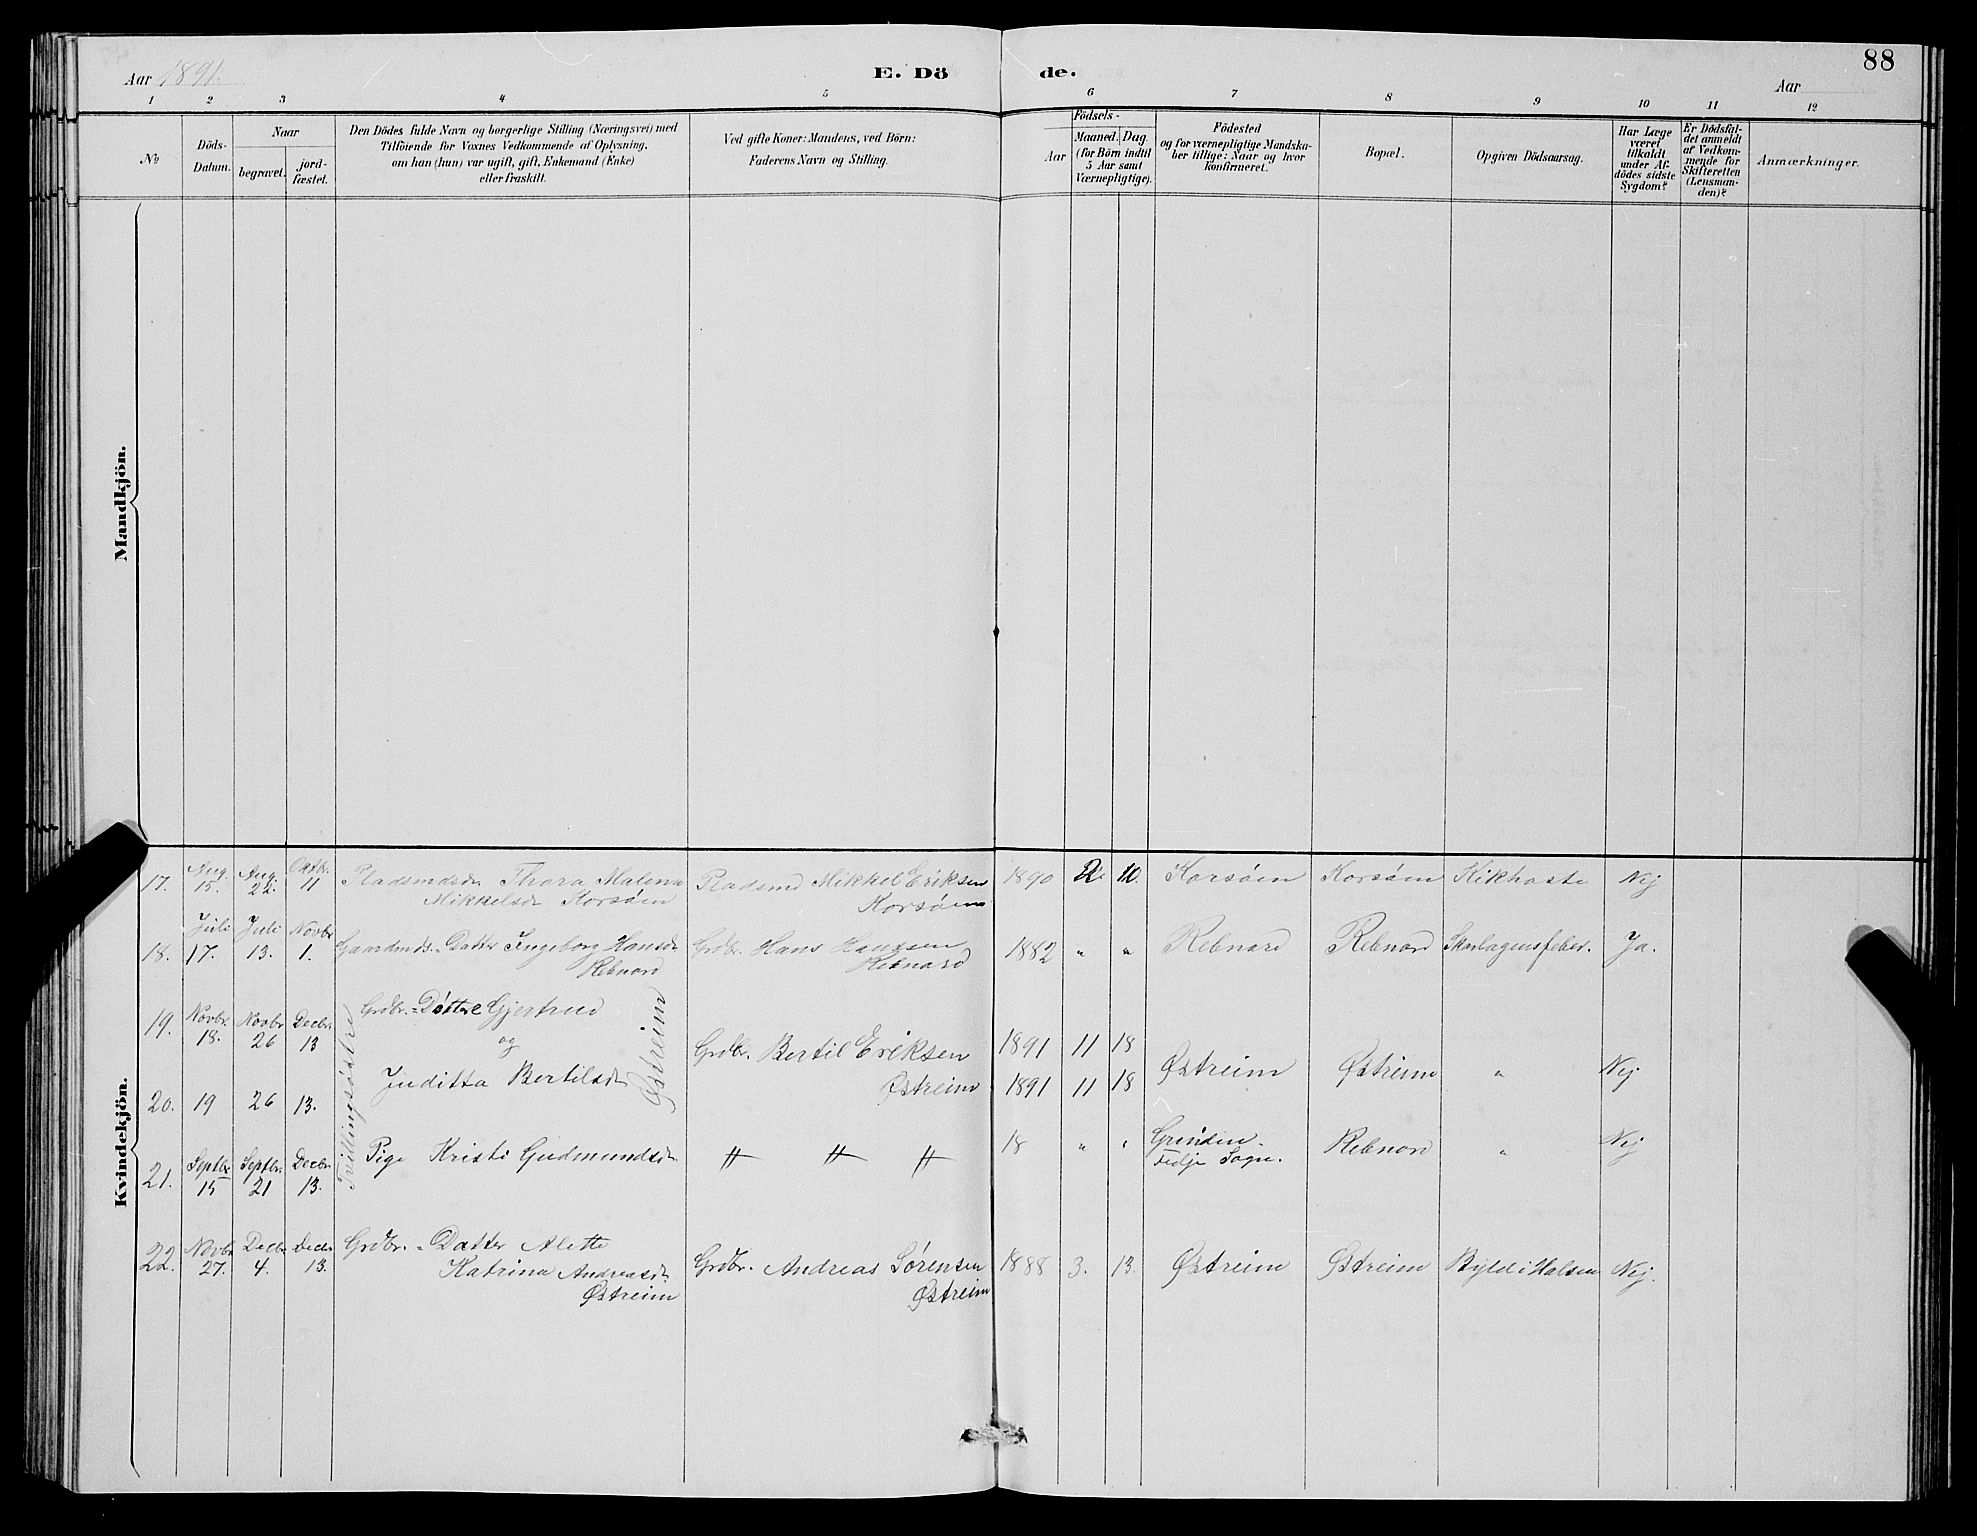 88
Aar 1891.
E. Dö de.
Aar
1 2 3 4 5 6 7 8 9 10 11 12
No
Döds-
Datum.
Naar
begravet.
jord-
fæstet.
Den Dödes fulde Navn og borgerlige Stilling (Næringsvei) med
Tilföiende for Voxnes Vedkommende af Oplysning,
om han (hun) var ugift, gift, Enkemand (Enke)
eller fraskilt.
Ved gifte Koner: Mandens, ved Börn:
Faderens Navn og Stilling.
Födsels-
Aar
Maaned.
Dag
(for Börn indtil
5 Aar samt
Værnepligtige).
Födested
og for værnepligtige Mandska-
ber tillige: Naar og hvor
konfirmeret.
Bopæl.
Opgiven Dödsaarsag.
Har Læge
været
tilkaldt
under Af-
dödes sidste
Sygdom?
Er Dödsfal-
det anmeldt
af Vedkom-
mende for
Skifteretten
(Lensman-
den)?
Anmærkninger.
Mandkjön.
Kvindekjön.
17. Aug. 15. Aug. 22. Octbr. 11 Pladsmdsdtr Thora Malena Pladsmd Mikkel Eriksen 1890 2. 10. Korsöen Korsöen Kikhoste Nej
Mikkelsdtr Korsöen Korsöen
18. Juli 17. Juli 13. Novbr 1. Gaardmds.-Datter Ingeborg Hansdtr Grdbr. Hans Hansen 1882 " " Rebnord Rebnord Skarlagensfeber. Ja.
Rebnord Rebnord
19. Novbr. 18. Novbr 26 Decbr. 13 Grdbr.-Döttre Gjertrud
og
Grdbr. Bertil Eriksen 1891 11 18
20. 19 26 13. Juditta Bertilsdtr Østreim 1891 11 18 Østreim Østreim " Nej
Østreim
Tvillingsöstre
21. Septbr 15 Septbr. 21 Decbr 13. Pige Kristi Gudmundsdtr 18 " " Grinden Rebnord " Nej
Fedje Sogn.
22. Novbr 27. Decbr 4. Decbr 13. Grdbr.-Datter Alette
Katrina Andreasdtr. Grdbr. Andreas Sørensen 1888 3. 13. Østreim Østreim Byld i Halsen Nej.
Østreim Østreim